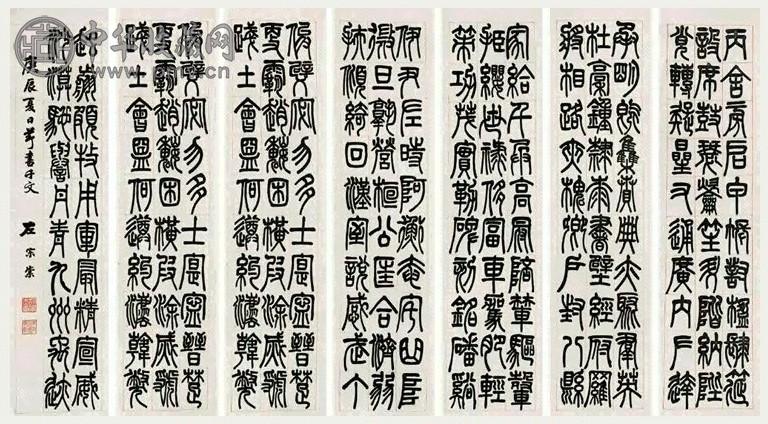 丙舍傍啟甲帳對楹肆筵
設席鼓瑟吹笙升階納陛
弁轉疑星右通廣內左達
承明既集墳典亦聚群英
杜稾鍾隸漆書壁經府羅
將相路俠槐卿戶封八縣
家給千兵高冠陪輦驅轂
振纓世祿侈富車駕肥輕
策功茂實勒碑刻銘磻溪
伊尹佐時阿衡奄宅曲阜
微旦孰營桓公匡合濟弱
扶傾綺回漢惠說感武丁
俊乂密勿多士寔寧晉楚
更霸趙魏困橫假途滅虢
踐土會盟何遵約法韓弊
俊乂密勿多士寔寧晉楚
更霸趙魏困橫假途滅虢
踐土會盟何遵約法韓弊
起翦頗牧用軍最精宣威
沙漠馳譽丹青九州禹迹
庚辰夏日節書千文
左宗棠
中华收藏网